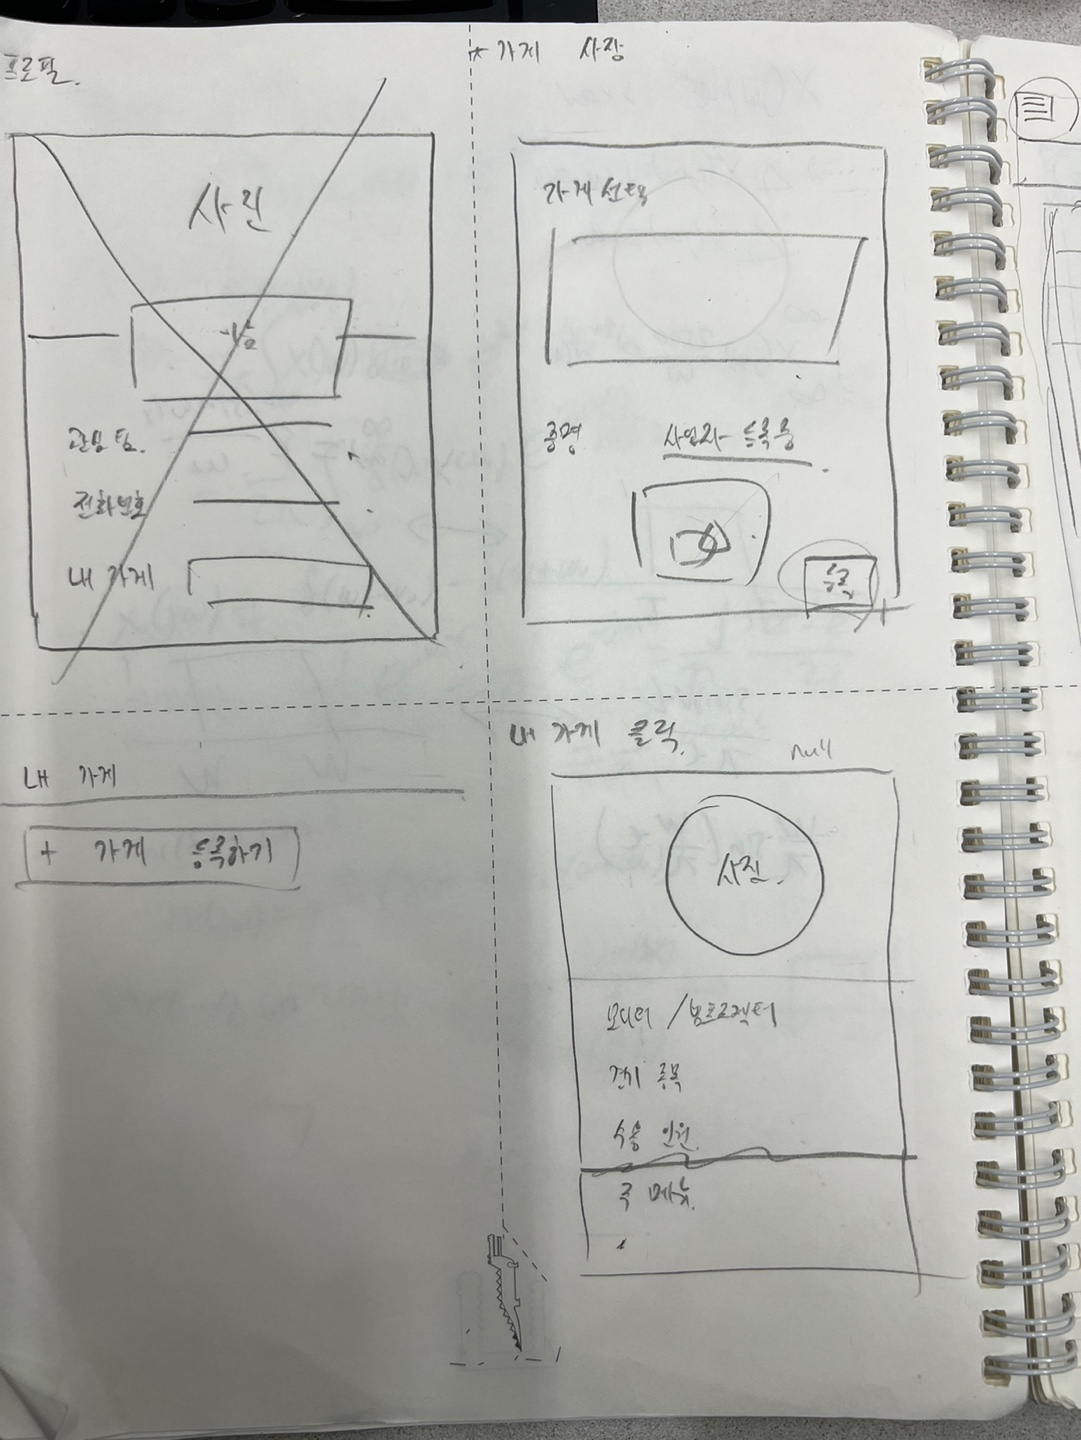 프로필.
사진
이름
관심 팀.
전화번호
내 가게
* 가게 사장
가게 선택
증명 사업자 등록증
등록
내 가게
+ 가게 등록하기
내 가게 클릭.
null
사진.
모니터 / 빔프로젝터
경기 종목
수용 인원
주 메뉴.